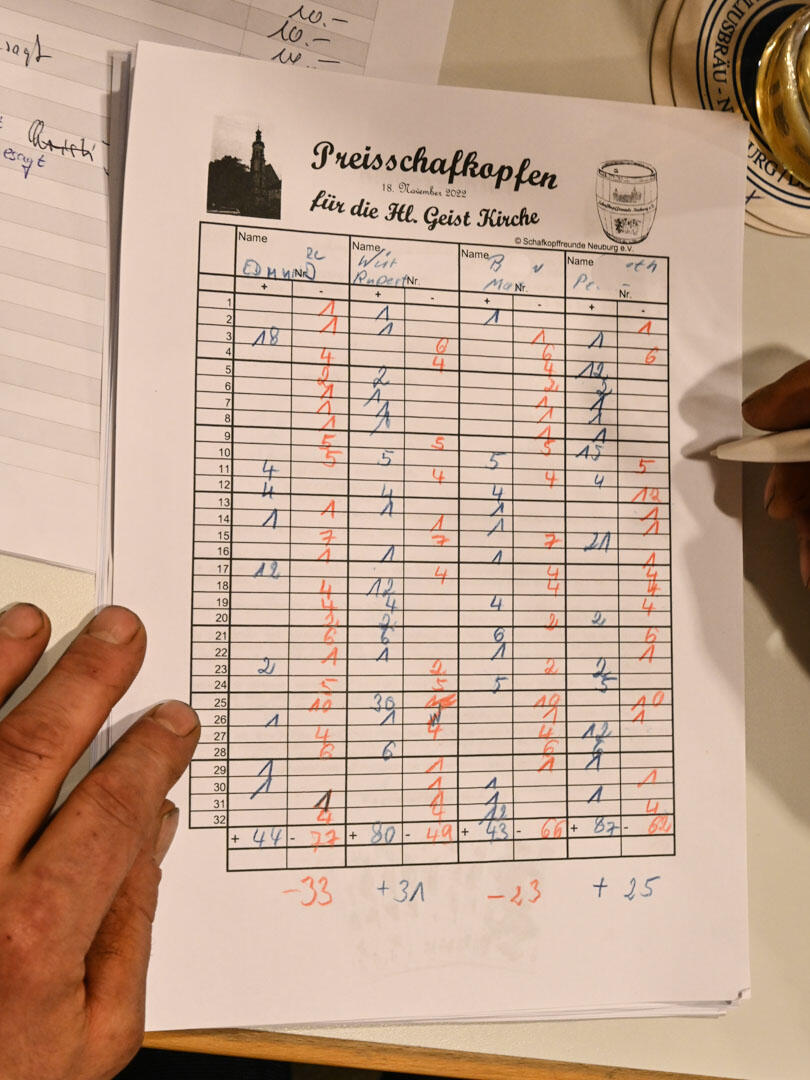 10.-
10.-
10.-
sagt
esagt
JULIUSBRÄU - N
Preisschafkopfen
18. November 2022
für die Hl. Geist Kirche
© Schafkopffreunde Neuburg e.V.
Name Name Name Name
EDMUND Nr. Rupert Nr. Nr. Nr.
+ - + - + - + -
1 1 1 1 1
2 1 1 1 1
3 18 6 6 6
4 4 4 4 12
5 2 2 2 2
6 1 1 1 1
7 1 1 1 1
8 1 1 1 1
9 5 5 5 15
10 5 5 5 5
11 4 4 4 4
12 4 4 4 12
13 1 1 1 1
14 1 1 1 1
15 7 7 7 21
16 1 1 1 1
17 12 4 4 4
18 4 12 4 4
19 4 4 4 4
20 2 2 2 2
21 6 6 6 6
22 1 1 1 1
23 2 2 2 2
24 5 5 5 5
25 10 30 10 10
26 1 1 1 1
27 4 4 4 12
28 6 6 6 6
29 1 1 1 1
30 1 1 1 1
31 1 1 1 1
32 4 4 12 4
+ 44 - 77 + 80 - 49 + 43 - 66 + 87 - 62
-33 +31 -23 + 25